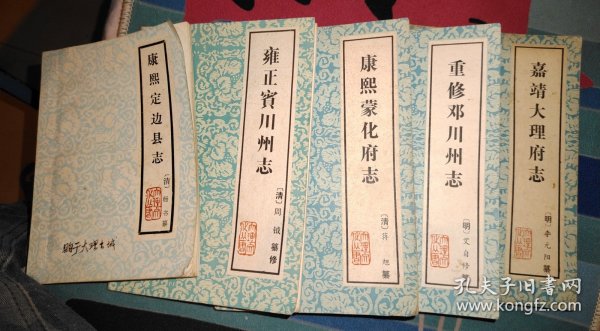 康熙定边县志
〔清〕杨书纂
购于大理古城
雍正賓川州志
〔清〕周钺纂修
康熙蒙化府志
〔清〕蒋旭纂
重修邓川州志
〔明〕艾自修纂
嘉靖大理府志
〔明〕李元阳纂
孔夫子旧书网
www.kongfz.com